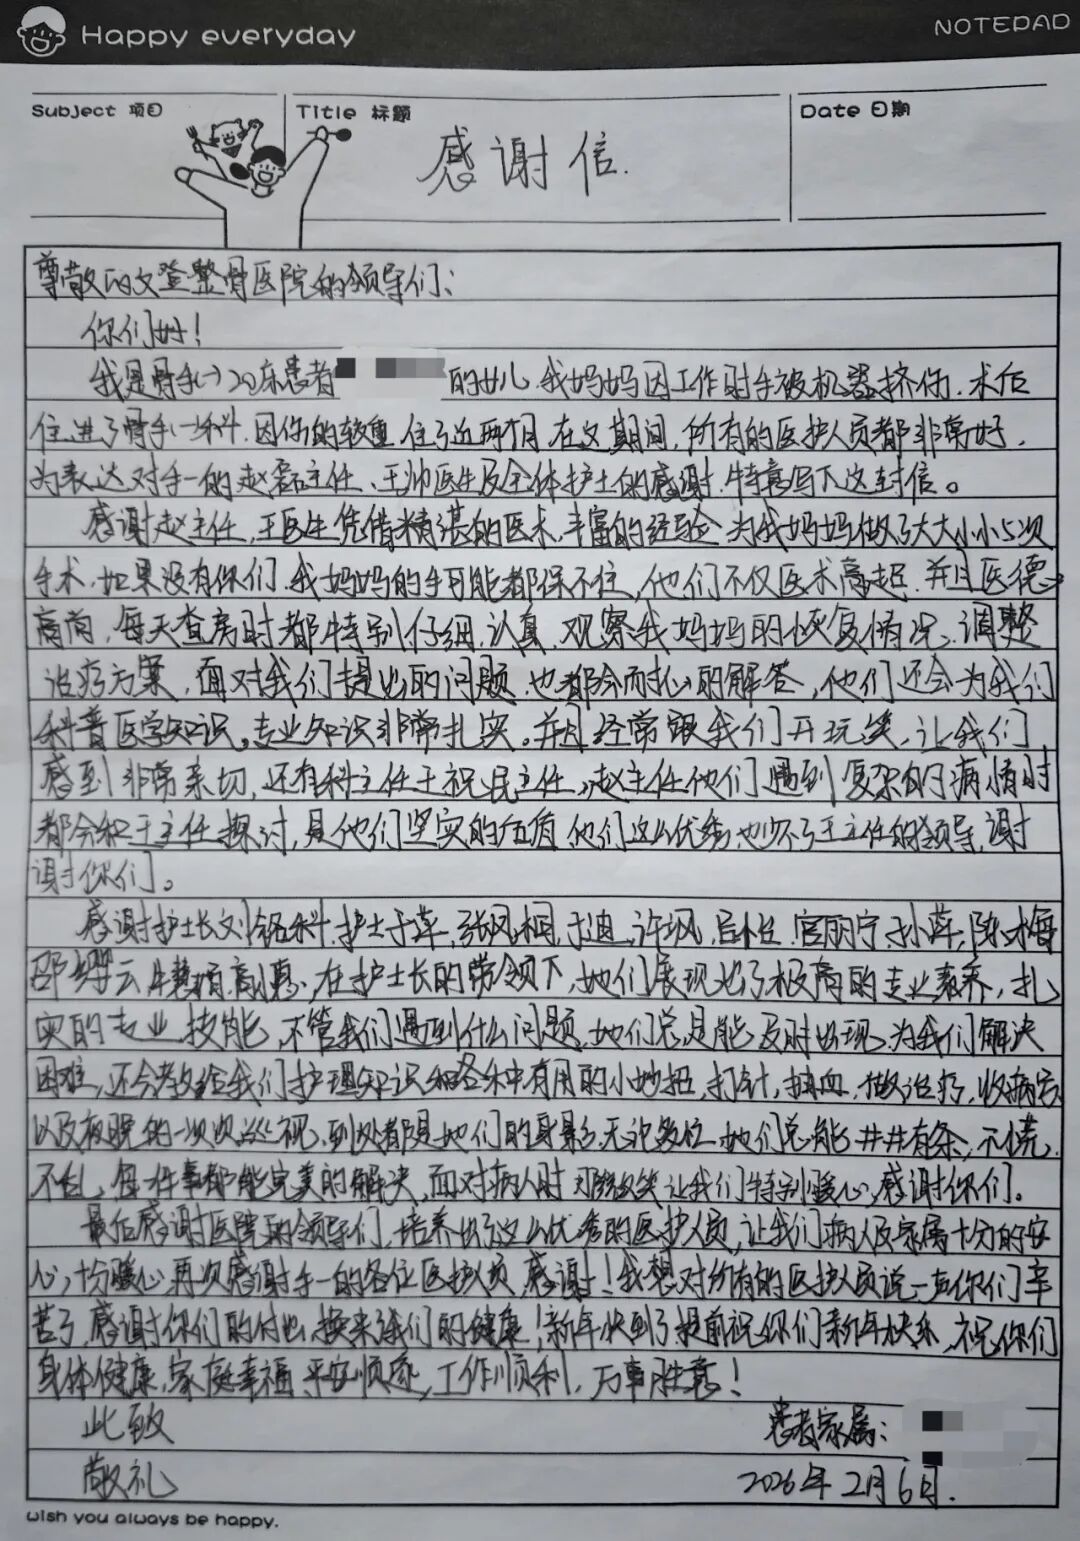 Happy everyday
NOTEPAD
Subject 项目
Title 标题
Date 日期
感谢信.
尊敬的文登整骨医院的领导们:
你们好!
我是骨手(一)20床患者 的女儿.我妈妈因工作时手被机器挤伤.术后
住进了骨手(一)科.因伤的较重.住了近两个月.在这期间,所有的医护人员都非常好.
为表达对手一的赵磊主任、王帅医生及全体护士的感谢.特意写下这封信。
感谢赵主任,王医生凭借精湛的医术.丰富的经验 为我妈妈做了大大小小5次
手术.如果没有你们.我妈妈的手可能都保不住,他们不仅医术高超.并且医德
高尚,每天查房时都特别仔细.认真.观察我妈妈的恢复情况、调整
治疗方案,面对我们提出的问题.也都会耐心的解答,他们还会为我们
科普医学知识。专业知识非常扎实。并且经常跟我们开玩笑.让我们
感到非常亲切,还有科主任王祝民主任,赵主任他们遇到复杂的病情时
都会和王主任探讨,是他们坚实的后盾.他们这么优秀也少不了王主任的领导,谢
谢你们。
感谢护士长刘铭科.护士于萍,张凤桐,于迪,许飒, 宫丽宁 孙萍,陈梅
邵缨云 高惠.在护士长的带领下,她们展现出了极高的专业素养,扎
实的专业技能,不管我们遇到什么问题.她们总是能及时出现.为我们解决
困难,还会教给我们护理知识和各种有用的小妙招,打针,抽血.做治疗,收病号
以及夜晚的一次次巡视、到处都是她们的身影,无论多忙.她们总能井井有条,不慌
不乱.每件事都能完美的解决,面对病人时 微笑让我们特别暖心,感谢你们。
最后感谢医院的领导们,培养出了这么优秀的医护人员,让我们病人及家属十分的安
心,十分暖心.再次感谢手一的各位医护人员.感谢!我想对所有的医护人员说一声你们辛
苦了.感谢你们的付出.换来我们的健康!新年快到了提前祝你们新年快乐.祝你们
身体健康,家庭幸福.平安顺遂,工作顺利,万事胜意!
此致
患者家属:
敬礼
2026年2月6日.
wish you always be happy.